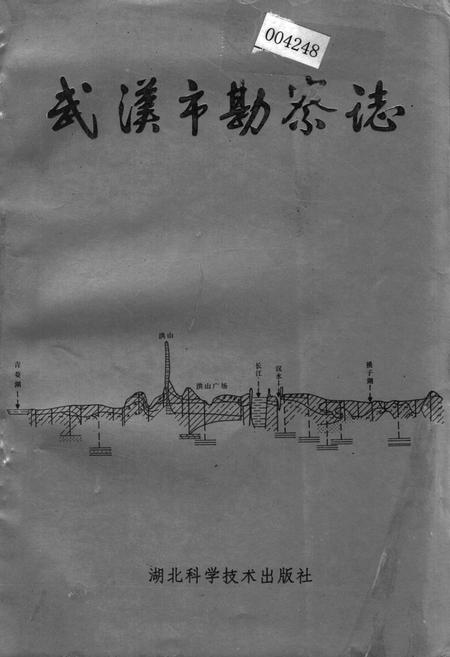 004248
武漢市勘察誌
洪山
青菱湖
洪山广场
长江
汉水
湖北科学技术出版社